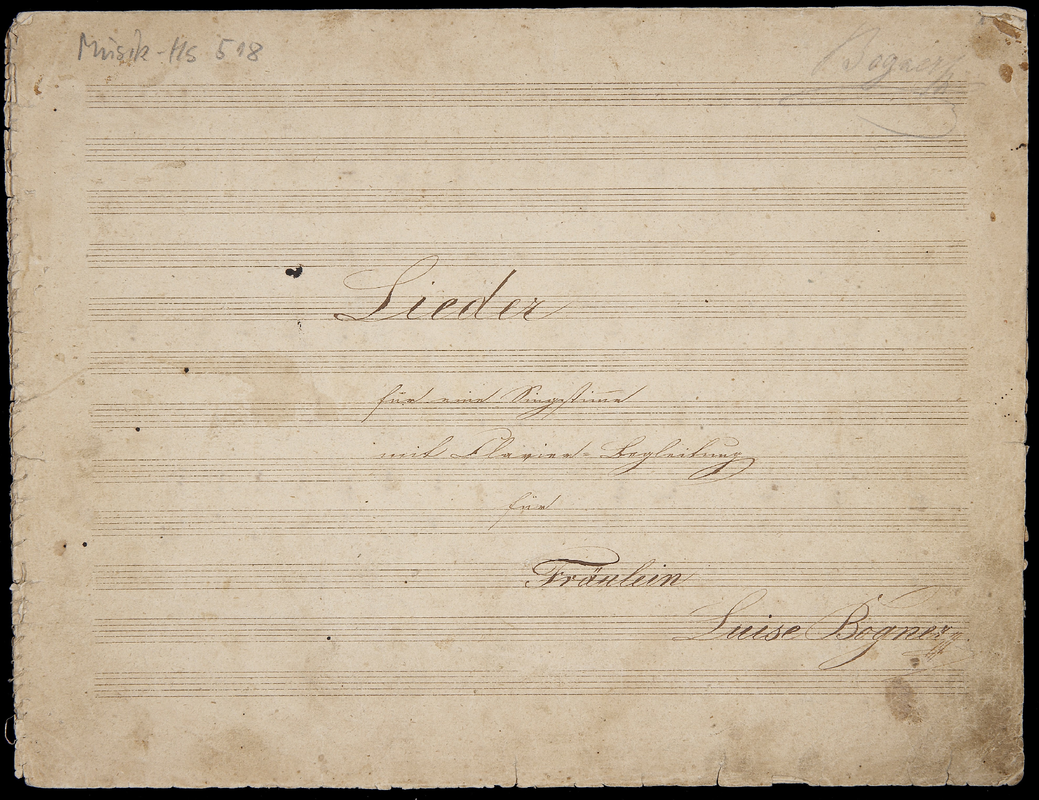 Musik-Hs 518
Bogner
Lieder
für eine Singstimme
mit Clavier-Begleitung
für
Fräulein
Luise Bogner